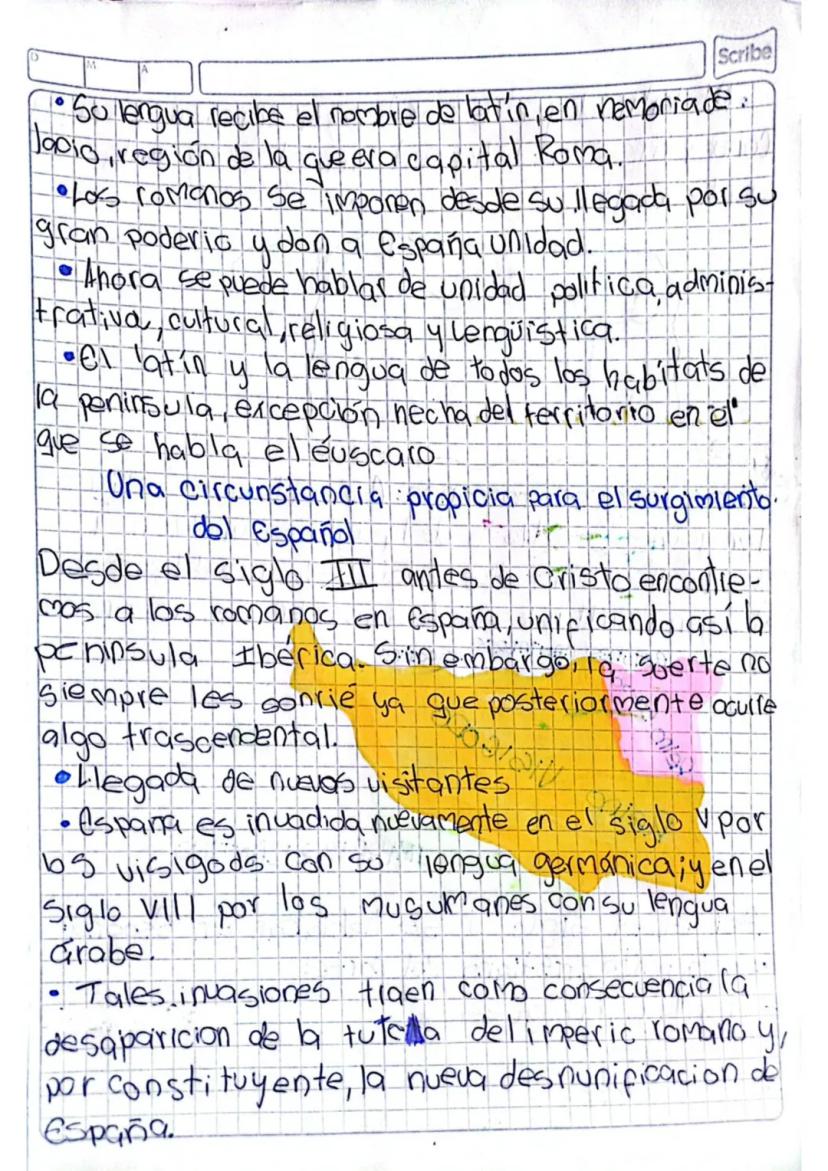 Scribe
D M A
• Su lengua recibe el nombre de latín, en memoria de
lacio, región de la que era capital Roma.
• Los romanos se imponen desde su llegada por su
gran poderio y don a España unidad.
• Ahora se puede hablar de unidad politica, adminis-
trativa, cultural, religiosa y lengüistica.
• El latín y la lengua de todos los habitats de
la peninsula, excepción hecha del territorio en el
que se habla el éuscaro
Una circunstancia propicia para el surgimiento
del Español
Desde el siglo III antes de Cristo encontre-
mos a los romanos en España, unificando así la
peninsula Ibérica. Sin embargo, la suerte no
siempre les sonrié ya que posteriormente ocurre
algo trascendental.
• Llegada de nuevos visitantes
• España es invadida nuevamente en el siglo V por
los visigods con su lengua germánica; y en el
siglo VIII por los musumanes con su lengua
árabe.
• Tales invasiones traen como consecuencia la
desaparicion de la tutela del imperio romano y,
por constituyente, la nueva desnunificacion de
España.